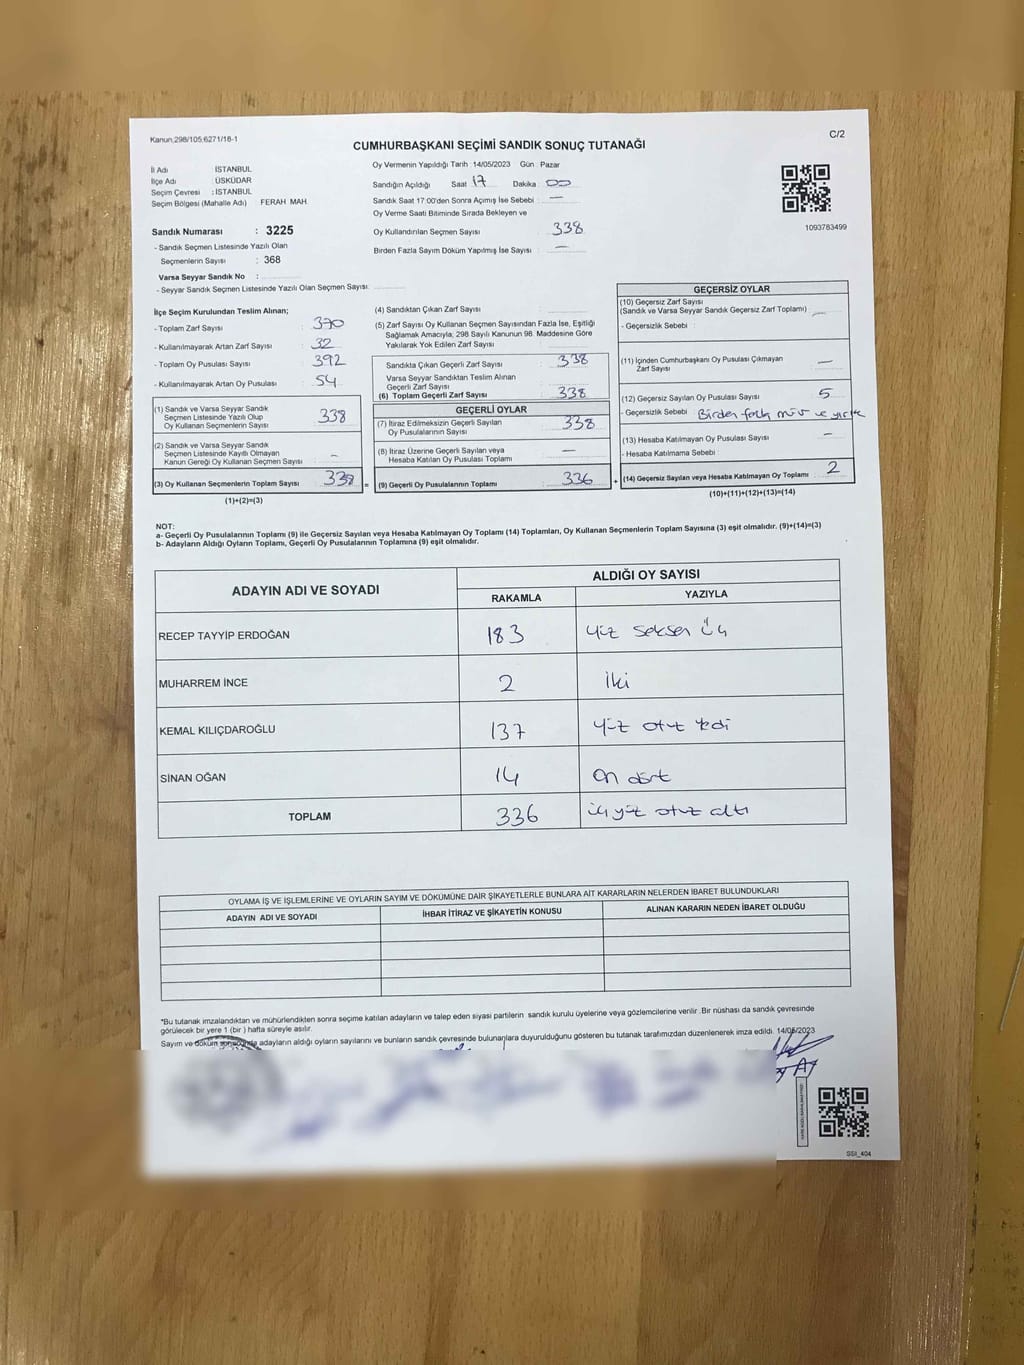 Kanun,298/105,6271/18-1
C/2
CUMHURBAŞKANI SEÇİMİ SANDIK SONUÇ TUTANAĞI
İl Adı İSTANBUL
İlçe Adı ÜSKÜDAR
Seçim Çevresi : İSTANBUL
Seçim Bölgesi (Mahalle Adı) FERAH MAH.
Oy Vermenin Yapıldığı Tarih :14/05/2023 Gün : Pazar
Sandığın Açıldığı Saat 17 Dakika : 00
Sandık Saat 17.00'den Sonra Açımış İse Sebebi : —
Oy Verme Saati Bitiminde Sırada Bekleyen ve
Oy Kullandırılan Seçmen Sayısı : 338
Birden Fazla Sayım Döküm Yapılmış İse Sayısı : —
1093783499
Sandık Numarası : 3225
- Sandık Seçmen Listesinde Yazılı Olan
Seçmenlerin Sayısı : 368
Varsa Seyyar Sandık No :
- Seyyar Sandık Seçmen Listesinde Yazılı Olan Seçmen Sayısı:
İlçe Seçim Kurulundan Teslim Alınan;
- Toplam Zarf Sayısı : 370
- Kullanılmayarak Artan Zarf Sayısı : 32
- Toplam Oy Pusulası Sayısı : 392
- Kullanılmayarak Artan Oy Pusulası : 54
(1) Sandık ve Varsa Seyyar Sandık
Seçmen Listesinde Yazılı Olup
Oy Kullanan Seçmenlerin Sayısı : 338
(2) Sandık ve Varsa Seyyar Sandık
Seçmen Listesinde Kayıtlı Olmayan
Kanun Gereği Oy Kullanan Seçmen Sayısı : –
(3) Oy Kullanan Seçmenlerin Toplam Sayısı : 338 =
(1)+(2)=(3)
(4) Sandıktan Çıkan Zarf Sayısı :
(5) Zarf Sayısı Oy Kullanan Seçmen Sayısından Fazla İse, Eşitliği
Sağlamak Amacıyla; 298 Sayılı Kanunun 98. Maddesine Göre
Yakılarak Yok Edilen Zarf Sayısı :
Sandıkta Çıkan Geçerli Zarf Sayısı : 338
Varsa Seyyar Sandıktan Teslim Alınan
Geçerli Zarf Sayısı :
(6) Toplam Geçerli Zarf Sayısı : 338
GEÇERLİ OYLAR
(7) İtiraz Edilmeksizin Geçerli Sayılan
Oy Pusulalarının Sayısı : 338
(8) İtiraz Üzerine Geçerli Sayılan veya
Hesaba Katılan Oy Pusulası Toplamı : —
(9) Geçerli Oy Pusulalarının Toplamı : 336 +
GEÇERSİZ OYLAR
(10) Geçersiz Zarf Sayısı
(Sandık ve Varsa Seyyar Sandık Geçersiz Zarf Toplamı) : —
- Geçersizlik Sebebi :
(11) İçinden Cumhurbaşkanı Oy Pusulası Çıkmayan
Zarf Sayısı : —
(12) Geçersiz Sayılan Oy Pusulası Sayısı : 5
- Geçersizlik Sebebi : Birden fazla ve
(13) Hesaba Katılmayan Oy Pusulası Sayısı : –
- Hesaba Katılmama Sebebi :
(14) Geçersiz Sayılan veya Hesaba Katılmayan Oy Toplamı : 2
(10)+(11)+(12)+(13)=(14)
NOT:
a- Geçerli Oy Pusulalarının Toplamı (9) ile Geçersiz Sayılan veya Hesaba Katılmayan Oy Toplamı (14) Toplamları, Oy Kullanan Seçmenlerin Toplam Sayısına (3) eşit olmalıdır. (9)+(14)=(3)
b- Adayların Aldığı Oyların Toplamı, Geçerli Oy Pusulalarının Toplamına (9) eşit olmalıdır.
ADAYIN ADI VE SOYADI ALDIĞI OY SAYISI
RAKAMLA YAZIYLA
RECEP TAYYİP ERDOĞAN 183 Yüz seksen üç
MUHARREM İNCE 2 İki
KEMAL KILIÇDAROĞLU 137 Yüz otuz Yedi
SİNAN OĞAN 14 On dört
TOPLAM 336 üçyüz otuz altı
OYLAMA İŞ VE İŞLEMLERİNE VE OYLARIN SAYIM VE DÖKÜMÜNE DAİR ŞİKAYETLERLE BUNLARA AİT KARARLARIN NELERDEN İBARET BULUNDUKLARI
ADAYIN ADI VE SOYADI İHBAR İTİRAZ VE ŞİKAYETİN KONUSU ALINAN KARARIN NEDEN İBARET OLDUĞU
*Bu tutanak imzalandıktan ve mühürlendikten sonra seçime katılan adayların ve talep eden siyasi partilerin sandık kurulu üyelerine veya gözlemcilerine verilir .Bir nüshası da sandık çevresinde
görülecek bir yere 1 (bir ) hafta süreyle asılır.
Sayım ve döküm sonucunda adayların aldığı oyların sayılarını ve bunların sandık çevresinde bulunanlara duyurulduğunu gösteren bu tutanak tarafımızdan düzenlenerek imza edildi. 14/05/2023
SSI_404